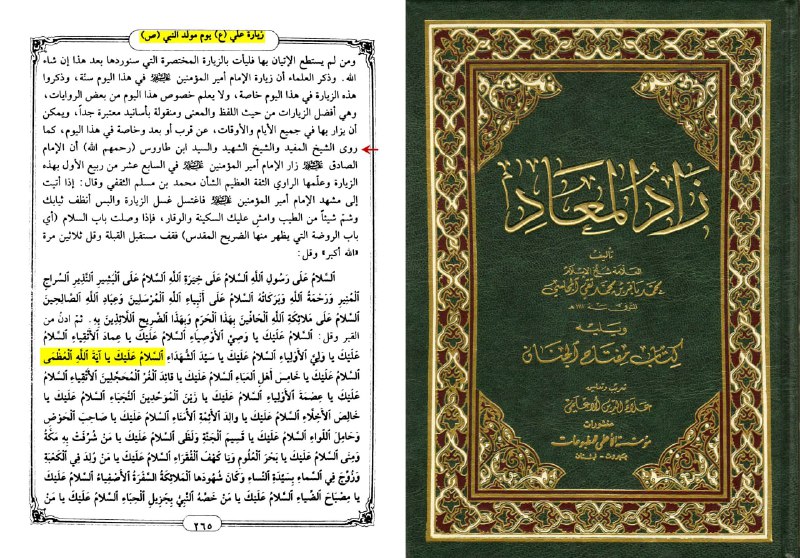 زيارة علي (ع) يوم مولد النبي (ص)
ومن لم يستطع الإتيان بها فليأت بالزيارة المختصرة التي سنوردها بعد هذا إن شاء
الله. وذكر العلماء أن زيارة الإمام أمير المؤمنين عليه السلام في هذا اليوم سنّة، وذكروا
هذه الزيارة في هذا اليوم خاصة، ولا يعلم خصوص هذا اليوم من بعض الروايات،
وهي أفضل الزيارات من حيث اللفظ والمعنى ومنقولة بأسانيد معتبرة جداً، ويمكن
أن يزار بها في جميع الأيام والأوقات، عن قرب أو بعد وخاصة في هذا اليوم، كما
روى الشيخ المفيد والشيخ الشهيد والسيد ابن طاووس (رحمهم الله) أن الإمام
الصادق عليه السلام زار الإمام أمير المؤمنين عليه السلام في السابع عشر من ربيع الأول بهذه
الزيارة وعلّمها الراوي الثقة العظيم الشأن محمد بن مسلم الثقفي وقال: إذا أتيت
إلى مشهد الإمام أمير المؤمنين عليه السلام فاغتسل غسل الزيارة والبس أنظف ثيابك
وشمّ شيئاً من الطيب وامشِ عليك السكينة والوقار، فإذا وصلت باب السلام (أي
باب الروضة التي يظهر منها الضريح المقدس) فقف مستقبل القبلة وقل ثلاثين مرة
«الله أكبر» وقل:
اَلسَّلامُ عَلى رَسُولِ اللّهِ اَلسَّلامُ عَلى خِيَرَةِ اللّهِ اَلسَّلامُ عَلَى الْبَشِيرِ النَّذِيرِ السِّراجِ
الْمُنِيرِ وَرَحْمَةُ اللّهِ وَبَرَكاتُهُ اَلسَّلامُ عَلى أَنْبِياءِ اللّهِ الْمُرْسَلِينَ وَعِبادِ اللّهِ الصّالِحِينَ
اَلسَّلامُ عَلى مَلائِكَةِ اللّهِ الْحافِّينَ بِهذَا الْحَرَمِ وَبِهذَا الضَّرِيحِ اللّائِذِينَ بِهِ. ثمّ ادنُ من
القبر وقل: اَلسَّلامُ عَلَيْكَ يا وَصِيَّ الْأَوْصِياءِ اَلسَّلامُ عَلَيْكَ يا عِمادَ الْأَتْقِياءِ اَلسَّلامُ
عَلَيْكَ يا وَلِيَّ الْأَوْلِياءِ اَلسَّلامُ عَلَيْكَ يا سَيِّدَ الشُّهَداءِ اَلسَّلامُ عَلَيْكَ يا آيَةَ اللّهِ الْعُظْمى
اَلسَّلامُ عَلَيْكَ يا خامِسَ أَهْلِ الْعَباءِ اَلسَّلامُ عَلَيْكَ يا قائِدَ الْغُرِّ الْمُحَجَّلِينَ الْأَتْقِياءِ اَلسَّلامُ
عَلَيْكَ يا عِصْمَةَ الْأَوْلِياءِ اَلسَّلامُ عَلَيْكَ يا زَيْنَ الْمُوَحِّدِينَ النُّجَباءِ اَلسَّلامُ عَلَيْكَ يا
خالِصَ الْأَخِلّاءِ اَلسَّلامُ عَلَيْكَ يا والِدَ الْأَئِمَّةِ الْأُمَناءِ اَلسَّلامُ عَلَيْكَ يا صاحِبَ الْحَوْضِ
وَحامِلَ اللِّواءِ اَلسَّلامُ عَلَيْكَ يا قَسِيمَ الْجَنَّةِ وَلَظى اَلسَّلامُ عَلَيْكَ يا مَنْ شُرِّفَتْ بِهِ مَكَّةُ
وَمِنى اَلسَّلامُ عَلَيْكَ يا بَحْرَ الْعُلُومِ وَيا كَهْفَ الْفُقَراءِ اَلسَّلامُ عَلَيْكَ يا مَنْ وُلِدَ فِي الْكَعْبَةِ
وَزُوِّجَ فِي السَّماءِ بِسَيِّدَةِ النِّساءِ وَكانَ شُهُودُهَا الْمَلائِكَةُ السَّفَرَةُ الْأَصْفِياءُ اَلسَّلامُ عَلَيْكَ
يا مِصْباحَ الضِّياءِ اَلسَّلامُ عَلَيْكَ يا مَنْ خَصَّهُ النَّبِيُّ بِجَزِيلِ الْحِباءِ اَلسَّلامُ عَلَيْكَ يا مَنْ
٢٦٥
زَادُ المَعَاد
تأليف
العلامة شيخ الإسلام
محمد باقر بن محمد تقي المجلسي
المتوفى سنة ١١١١ هـ
ويليه
كتاب مفتاح الجنان
تعريب وتعليق
علاء الدين الأعلمي
منشورات
مؤسسة الأعلمي للمطبوعات
بيروت - لبنان